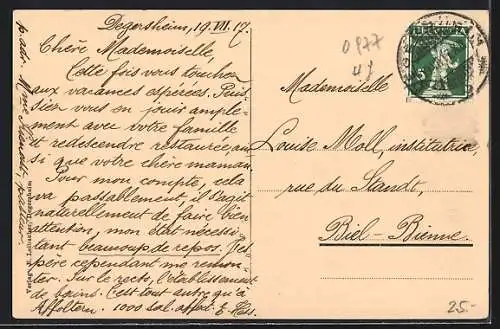 Degersheim, 19. VII. 17.
Chère Mademoiselle,
Cette fois vous touchez
aux vacances espérées. Puis-
siez vous en jouir ample-
ment avec votre famille
et redescendre restaurée ain-
si que votre chère maman.
Pour mon compte, cela
va passablement, il s'agit
naturellement de faire bien
attention, mon état nécessi-
tant beaucoup de repos. J'es-
père cependant me remon-
ter. Sur le recto, l'établissement
de bains. C'est tout autre qu'à
Affoltern. 1000 sal. affect. E.
p. adr. Mme pasteur.
Verlag Degersheim
HELVETIA
5
0977
Mademoiselle
Louise Moll, institutrice,
rue du Standt,
Biel-Bienne.
25.-